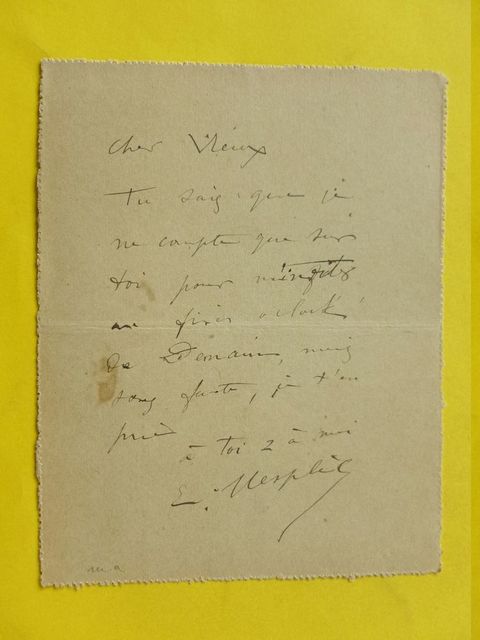 Cher Vieux
Tu sais que je
ne compte que sur
toi pour
au five o'clock
de Demain, mais
sans faute, je t'en
prie
à toi 2 à moi
E. Mesplès